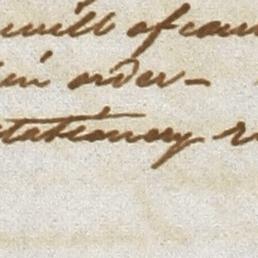 will of cour
in order-
stationery r